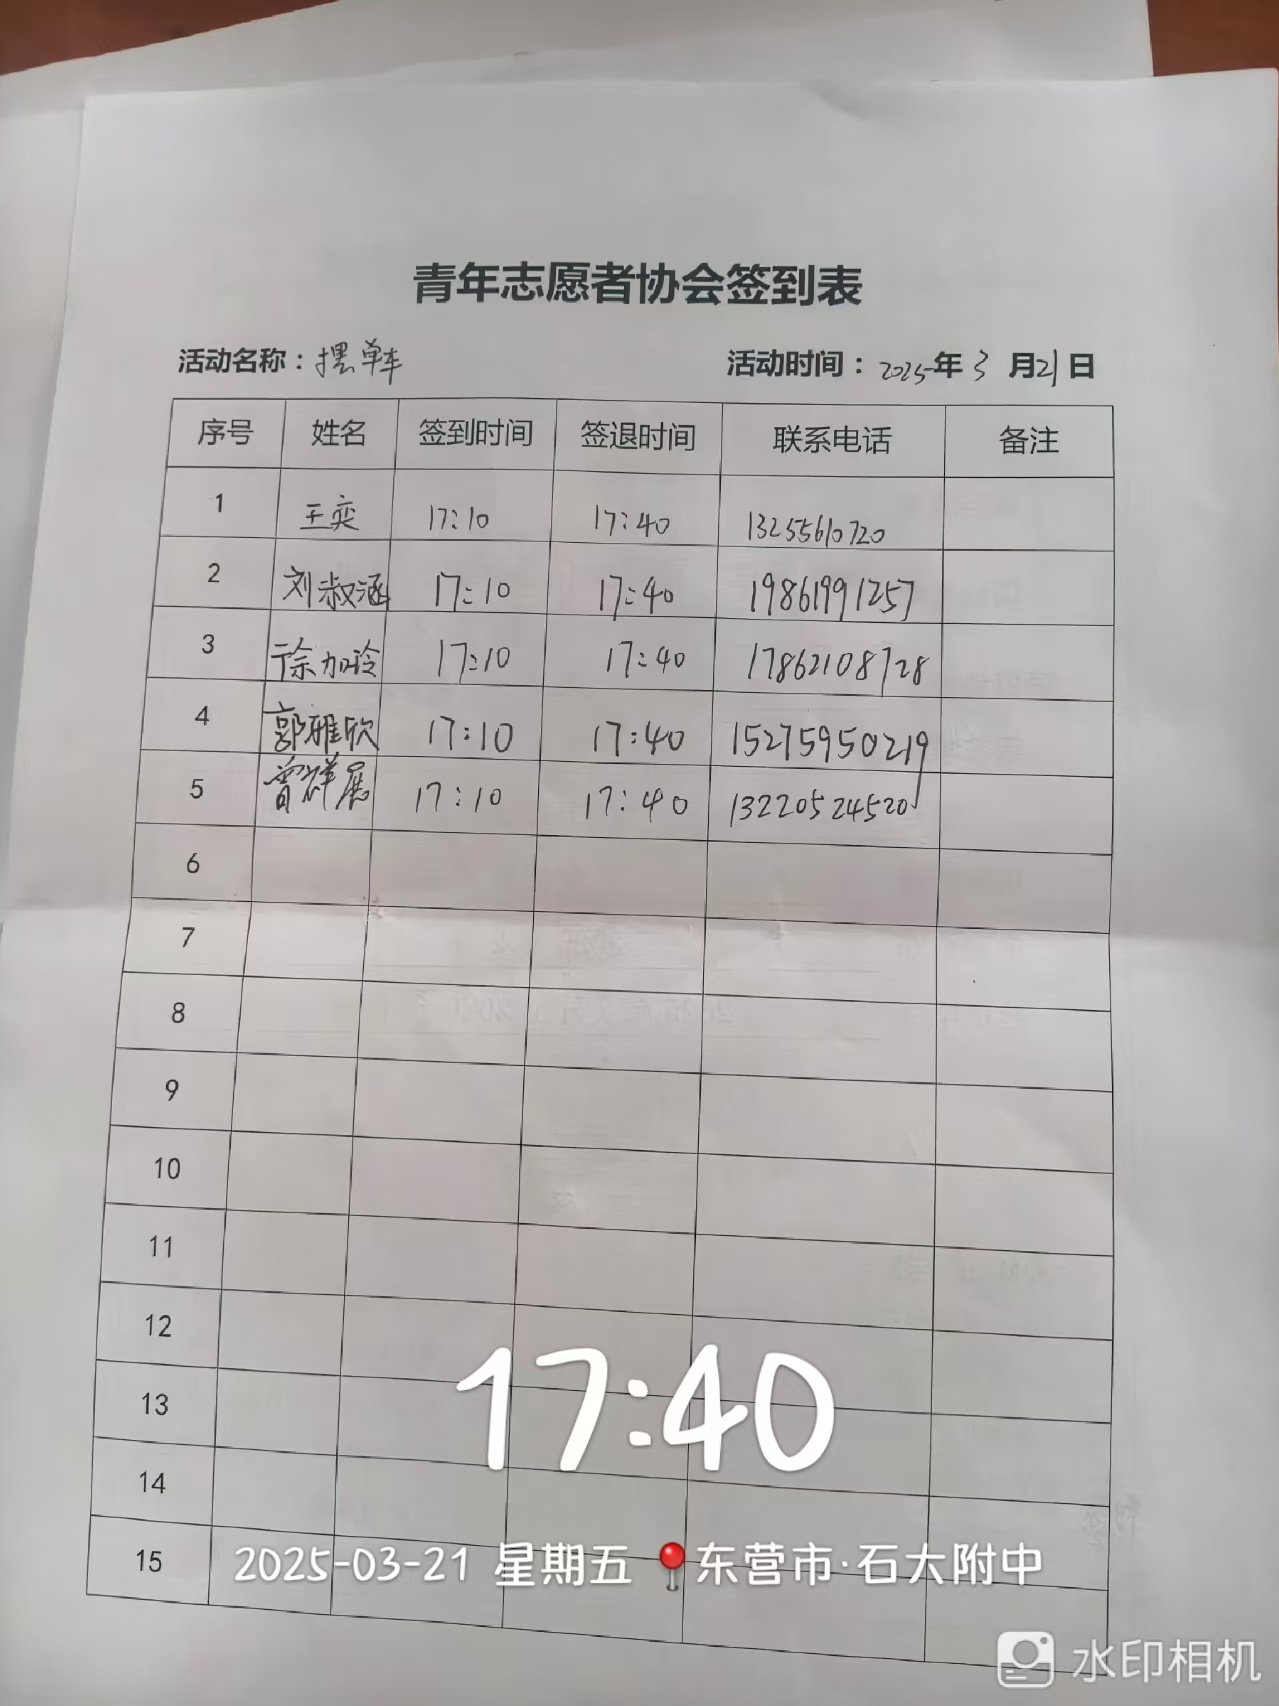 青年志愿者协会签到表
活动名称：摆单车 活动时间：2025年3月21日
序号 姓名 签到时间 签退时间 联系电话 备注
1 王奕 17:10 17:40 13255610720
2 刘淑涵 17:10 17:40 19861991257
3 徐加玲 17:10 17:40 17862108728
4 郭雅欣 17:10 17:40 15275950219
5 曾群展 17:10 17:40 13220524520
6
7
8
9
10
11
12
13
14
15
17:40
2025-03-21 星期五 东营市·石大附中
水印相机